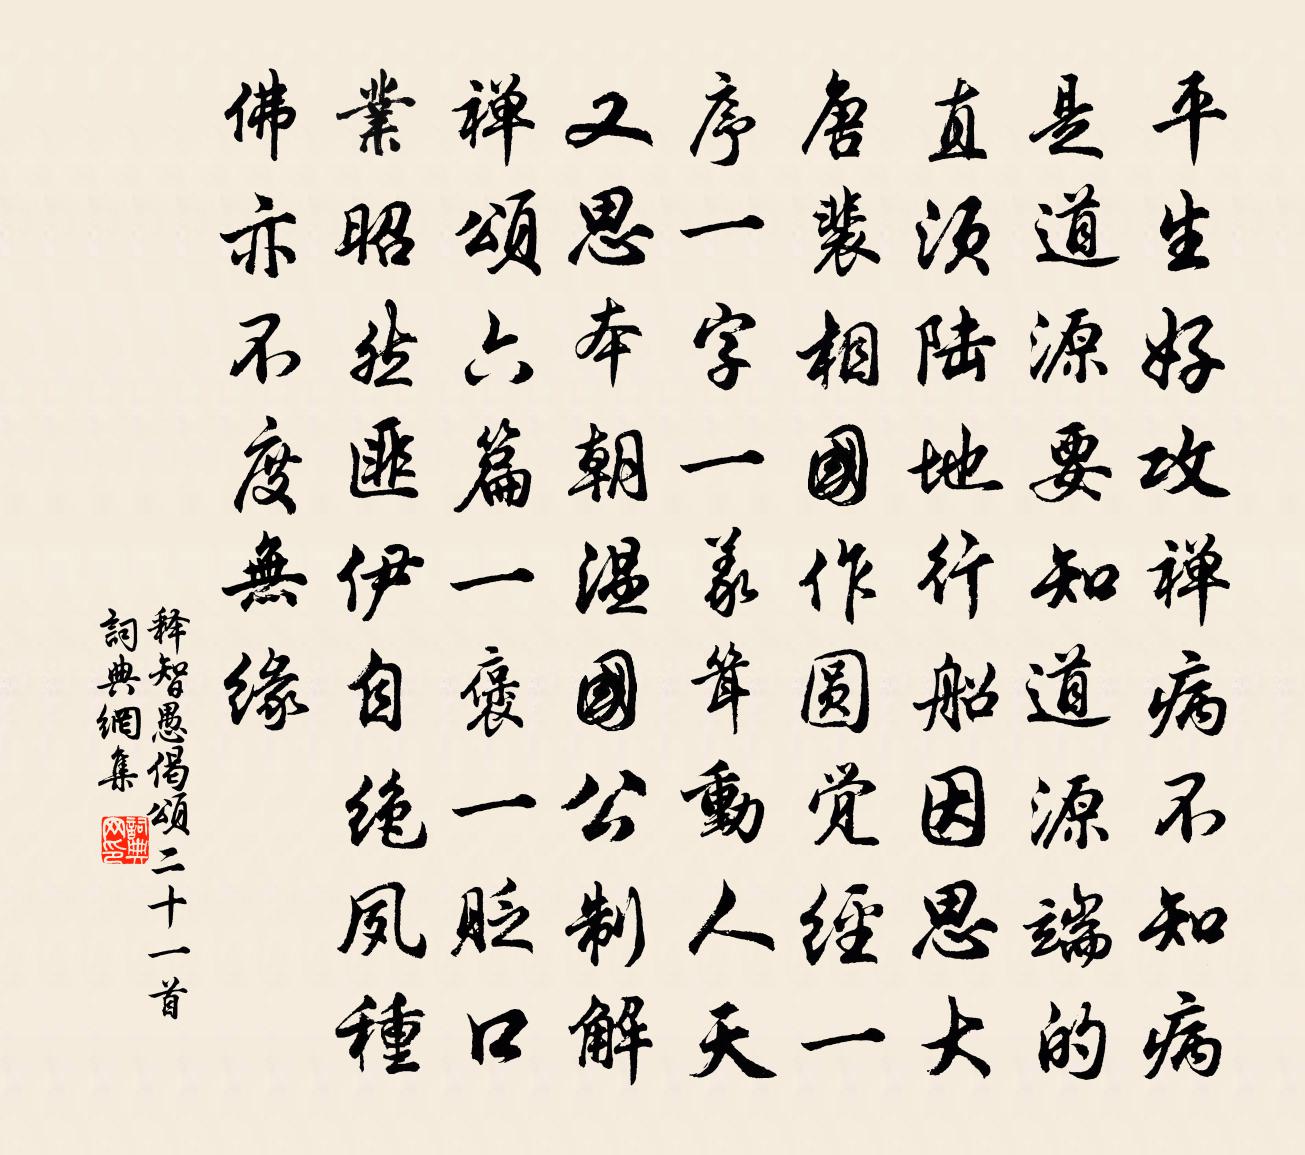 平生好攻禅病不知病
是道源要知道源端的
直须陆地行船因思大
唐裴相國作圆觉經一
序一字一义耸動人天
又思本朝温國公制解
禅頌六篇一褒一贬口
業昭然匪伊自绝夙種
佛亦不度無缘
释智愚偈頌二十一首
詞典網集